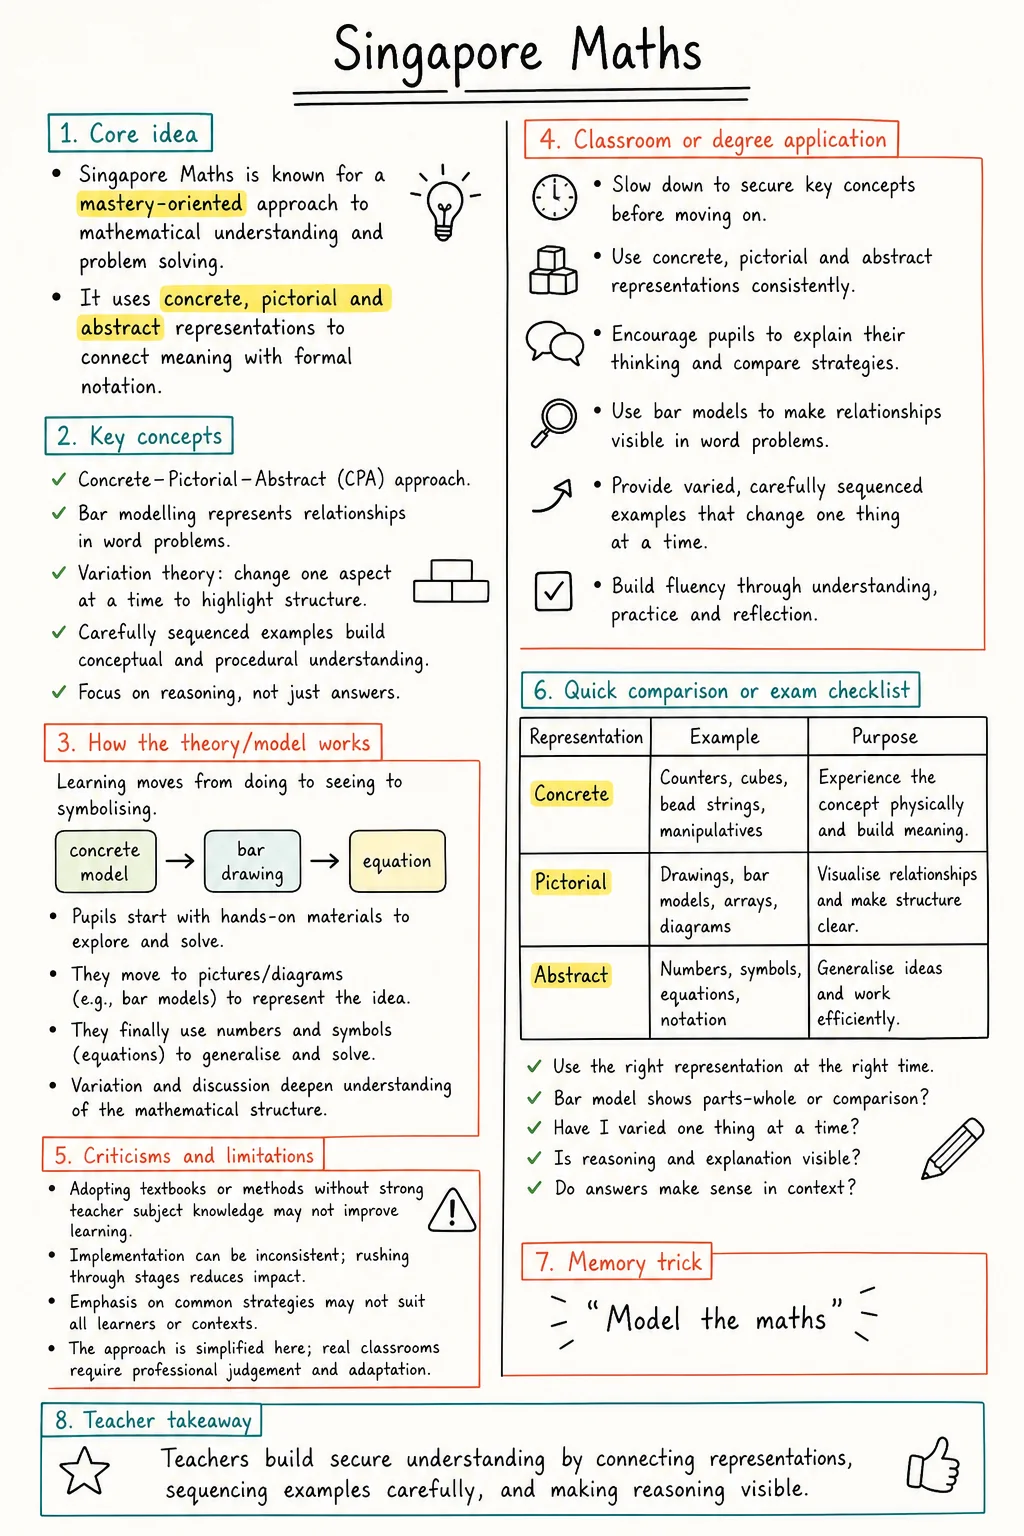 Singapore Maths
1. Core idea
• Singapore Maths is known for a
mastery-oriented approach to
mathematical understanding and
problem solving.
• It uses concrete, pictorial and
abstract representations to
connect meaning with formal
notation.
2. Key concepts
✓ Concrete–Pictorial–Abstract (CPA) approach.
✓ Bar modelling represents relationships
in word problems.
✓ Variation theory: change one aspect
at a time to highlight structure.
✓ Carefully sequenced examples build
conceptual and procedural understanding.
✓ Focus on reasoning, not just answers.
3. How the theory/model works
Learning moves from doing to seeing to
symbolising.
concrete
model
bar
drawing
equation
• Pupils start with hands-on materials to
explore and solve.
• They move to pictures/diagrams
(e.g., bar models) to represent the idea.
• They finally use numbers and symbols
(equations) to generalise and solve.
• Variation and discussion deepen understanding
of the mathematical structure.
5. Criticisms and limitations
• Adopting textbooks or methods without strong
teacher subject knowledge may not improve
learning.
• Implementation can be inconsistent; rushing
through stages reduces impact.
• Emphasis on common strategies may not suit
all learners or contexts.
• The approach is simplified here; real classrooms
require professional judgement and adaptation.
4. Classroom or degree application
• Slow down to secure key concepts
before moving on.
• Use concrete, pictorial and abstract
representations consistently.
• Encourage pupils to explain their
thinking and compare strategies.
• Use bar models to make relationships
visible in word problems.
• Provide varied, carefully sequenced
examples that change one thing
at a time.
• Build fluency through understanding,
practice and reflection.
6. Quick comparison or exam checklist
Representation Example Purpose
Concrete
Counters, cubes,
bead strings,
manipulatives
Experience the
concept physically
and build meaning.
Pictorial
Drawings, bar
models, arrays,
diagrams
Visualise relationships
and make structure
clear.
Abstract
Numbers, symbols,
equations,
notation
Generalise ideas
and work
efficiently.
✓ Use the right representation at the right time.
✓ Bar model shows parts-whole or comparison?
✓ Have I varied one thing at a time?
✓ Is reasoning and explanation visible?
✓ Do answers make sense in context?
7. Memory trick
"Model the maths"
8. Teacher takeaway
Teachers build secure understanding by connecting representations,
sequencing examples carefully, and making reasoning visible.